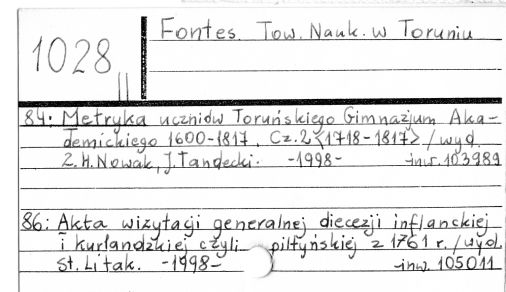 1028
Fontes. Tow. Nauk. w Toruniu
84: Metryka uczniów Toruńskiego Gimnazjum Aka-
demickiego 1600-1817. Cz.2 <1718-1817> / wyd.
Z.H. Nowak, J. Tandecki. -1998- -inw. 103989
86: Akta wizytacji generalnej diecezji inflanckiej
i kurlandzkiej czyli piltyńskiej z 1761 r. / wyd.
St. Litak. -1998- -inw. 105011